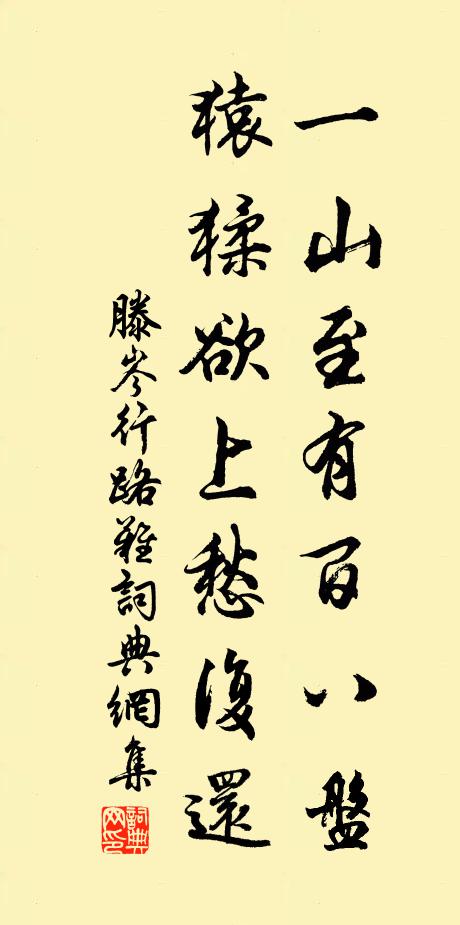 一山至有百八盤
猿猱欲上愁復還
滕岑行路難詞典網集
詞典网印